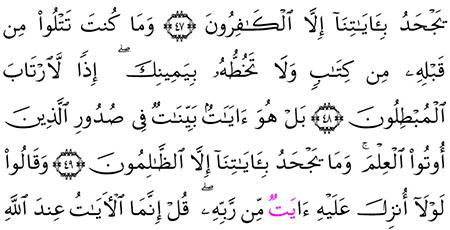 يَجْحَدُ بِـَٔايَـٰتِنَآ إِلَّا ٱلْكَـٰفِرُونَ ٤٧ وَمَا كُنتَ تَتْلُوا۟ مِن
قَبْلِهِۦ مِن كِتَـٰبٍ وَلَا تَخُطُّهُۥ بِيَمِينِكَ ۖ إِذًا لَّٱرْتَابَ
ٱلْمُبْطِلُونَ ٤٨ بَلْ هُوَ ءَايَـٰتٌۢ بَيِّنَـٰتٌ فِى صُدُورِ ٱلَّذِينَ
أُوتُوا۟ ٱلْعِلْمَ ۚ وَمَا يَجْحَدُ بِـَٔايَـٰتِنَآ إِلَّا ٱلظَّـٰلِمُونَ ٤٩ وَقَالُوا۟
لَوْلَآ أُنزِلَ عَلَيْهِ ءَايَـٰتٌ مِّن رَّبِّهِۦ ۖ قُلْ إِنَّمَا ٱلْـَٔايَـٰتُ عِندَ ٱللَّهِ